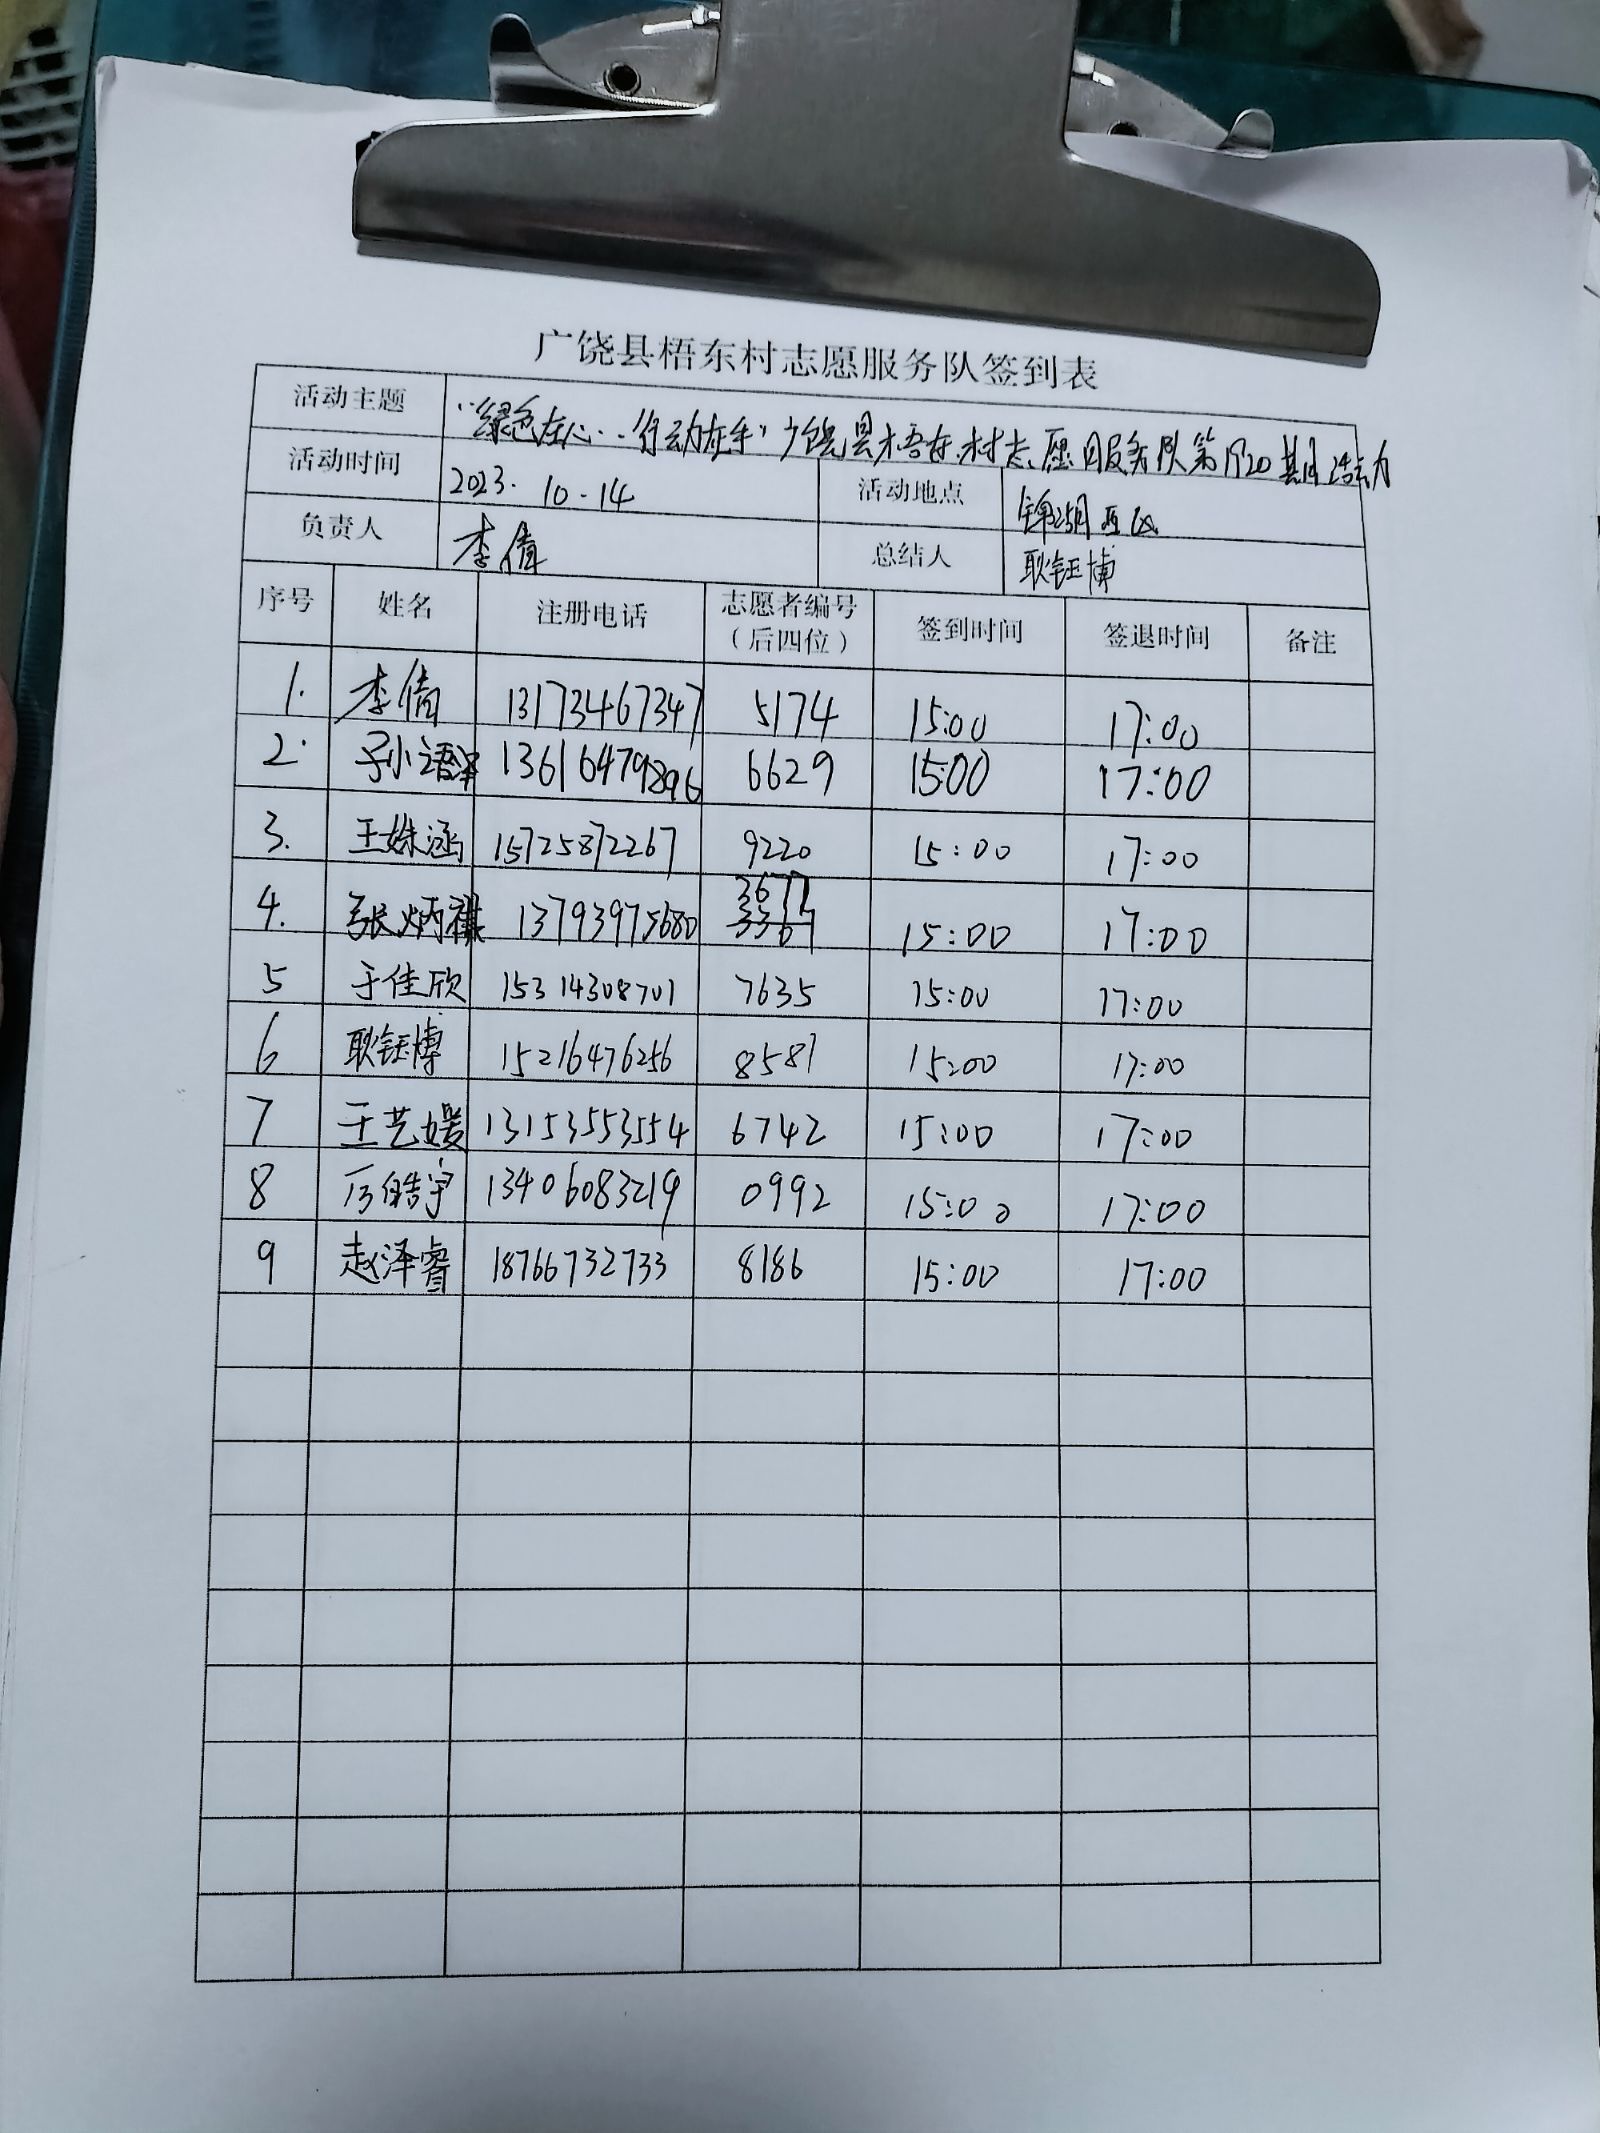 广饶县梧东村志愿服务队签到表
活动主题 “绿色在心..行动在手”广饶县梧东村志愿服务队第 期活动
活动时间 2023.10.14 活动地点 锦湖
负责人 李倩 总结人 耿钰博
序号 姓名 注册电话 志愿者编号(后四位) 签到时间 签退时间 备注
1. 李倩 13173467347 5174 15:00 17:00
2. 孙语泽 13616479896 6629 15:00 17:00
3. 王姝涵 15725872267 9220 15:00 17:00
4. 张炳祺 13793975680 3677 15:00 17:00
5 于佳欣 15314308701 7635 15:00 17:00
6 耿钰博 15216476256 8587 15:00 17:00
7 王艺媛 13153553554 6742 15:00 17:00
8 皓宇 13406083219 0992 15:00 17:00
9 赵泽睿 18766732733 8186 15:00 17:00